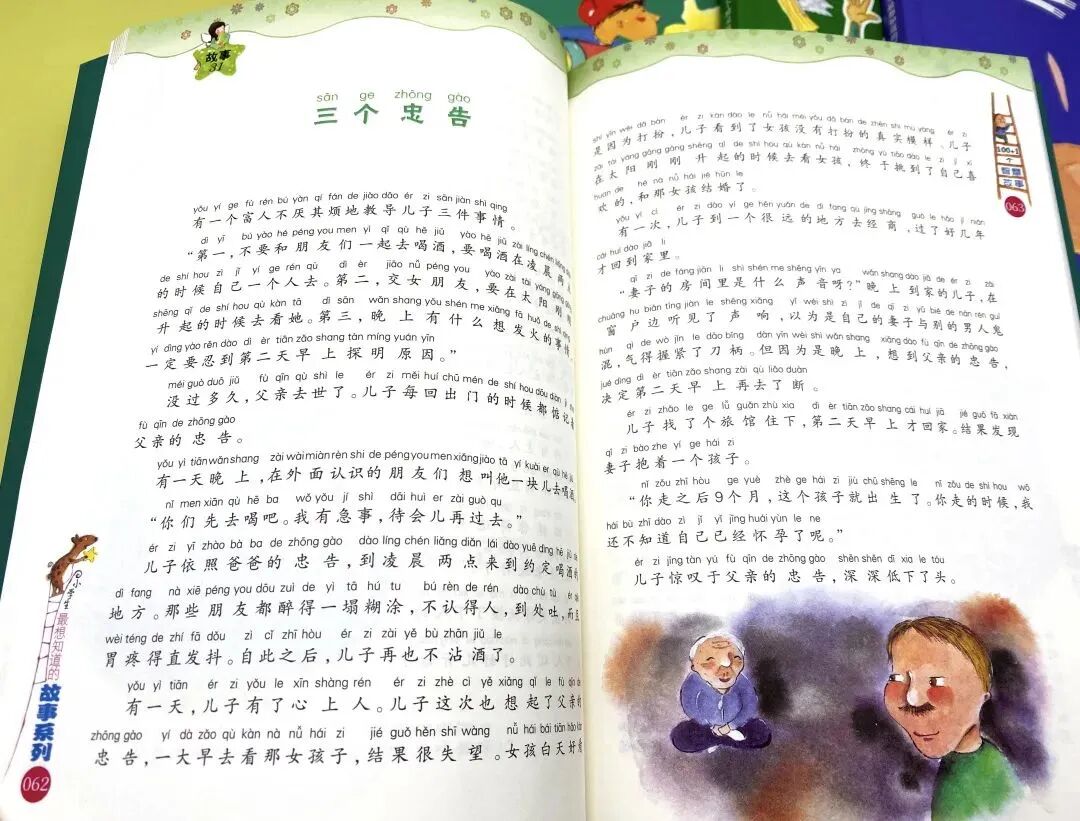 故事
31
sān ge zhōng gào
三个忠告
yǒu yí ge fù rén bú yàn qí fán de jiào dǎo ér zi sān jiàn shì qing
有一个富人不厌其烦地教导儿子三件事情。
dì yī bú yào hé péng you men yì qǐ qù hē jiǔ yào hē jiǔ zài líng chén liǎng
“第一，不要和朋友们一起去喝酒，要喝酒在凌晨两
de shí hou zì jǐ yí ge rén qù dì èr jiāo nǚ péng you yào zài tài yáng gāng gāng
的时候自己一个人去。第二，交女朋友，要在太阳刚刚
shēng qǐ de shí hou qù kàn tā dì sān wǎn shang yǒu shén me xiǎng fā huǒ de shì qing
升起的时候去看她。第三，晚上有什么想发火的事情
yí dìng yào rěn dào dì èr tiān zǎo shang tàn míng yuán yīn
一定要忍到第二天早上探明原因。”
méi guò duō jiǔ fù qīn qù shì le ér zi měi huí chū mén de shí hou dōu diàn jì
没过多久，父亲去世了。儿子每回出门的时候都惦记着
fù qīn de zhōng gào
父亲的忠告。
yǒu yì tiān wǎn shang zài wài miàn rèn shi de péng you men xiǎng jiào tā yí kuàir qù hē jiǔ
有一天晚上，在外面认识的朋友们想叫他一块儿去喝酒
nǐ men xiān qù hē ba wǒ yǒu jí shì dāi huì er zài guò qu
“你们先去喝吧。我有急事，待会儿再过去。”
ér zi yī zhào bà ba de zhōng gào dào líng chén liǎng diǎn lái dào yuē dìng hē jiǔ de
儿子依照爸爸的忠告，到凌晨两点来到约定喝酒的
dì fang nà xiē péng you dōu zuì de yì tā hú tu bú rèn de rén dào chù tù ér
地方。那些朋友都醉得一塌糊涂，不认得人，到处吐，而且
wèi téng de zhí fā dǒu zì cǐ zhī hòu ér zi zài yě bù zhān jiǔ le
胃疼得直发抖。自此之后，儿子再也不沾酒了。
yǒu yì tiān ér zi yǒu le xīn shàng rén ér zi zhè cì yě xiǎng qǐ le fù qīn
有一天，儿子有了心上人。儿子这次也想起了父亲的
zhōng gào yí dà zǎo qù kàn nà nǚ hái zi jié guǒ hěn shī wàng nǚ hái bái tiān hǎo kàn
忠告，一大早去看那女孩子，结果很失望。女孩白天好看
小学生
最想知道的
故事系列
062
shì yīn wèi dǎ bàn ér zi kàn dào le nǚ hái méi yǒu dǎ bàn de zhēn shí mú yàng ér zi
是因为打扮，儿子看到了女孩没有打扮的真实模样。儿子
zài tài yáng gāng gāng shēng qǐ de shí hou qù kàn nǚ hái zhōng yú tiāo dào le zì jǐ xǐ
在太阳刚刚升起的时候去看女孩，终于挑到了自己喜
huan de hé nà nǚ hái jié hūn le
欢的，和那女孩结婚了。
yǒu yí cì ér zi dào yí ge hěn yuǎn de dì fang qù jīng shāng guò le hǎo jǐ nián
有一次，儿子到一个很远的地方去经商，过了好几年
cái huí dào jiā li
才回到家里。
qī zi de fáng jiān li shì shén me shēng yīn ya wǎn shang dào jiā de ér zi zài
“妻子的房间里是什么声音呀？”晚上到家的儿子，在
chuāng hu biān tīng jiàn le shēng xiǎng yǐ wéi shì zì jǐ de qī zi yǔ bié de nán rén guǐ
窗户边听见了声响，以为是自己的妻子与别的男人鬼
hùn qì de wò jǐn le dāo bǐng dàn yīn wèi shì wǎn shang xiǎng dào fù qīn de zhōng gào
混，气得握紧了刀柄。但因为是晚上，想到父亲的忠告，
jué dìng dì èr tiān zǎo shang zài qù liǎo duàn
决定第二天早上再去了断。
ér zi zhǎo le ge lǚ guǎn zhù xia dì èr tiān zǎo shang cái huí jiā jié guǒ fā xiàn
儿子找了个旅馆住下，第二天早上才回家。结果发现
qī zi bào zhe yí ge hái zi
妻子抱着一个孩子。
nǐ zǒu zhī hòu ge yuè zhè ge hái zi jiù chū shēng le nǐ zǒu de shí hou wǒ
“你走之后9个月，这个孩子就出生了。你走的时候，我
hái bù zhī dào zì jǐ yǐ jīng huái yùn le ne
还不知道自己已经怀孕了呢。”
ér zi jīng tàn yú fù qīn de zhōng gào shēn shēn dī xia le tóu
儿子惊叹于父亲的忠告，深深低下了头。
100+1
个
智慧
故事
063